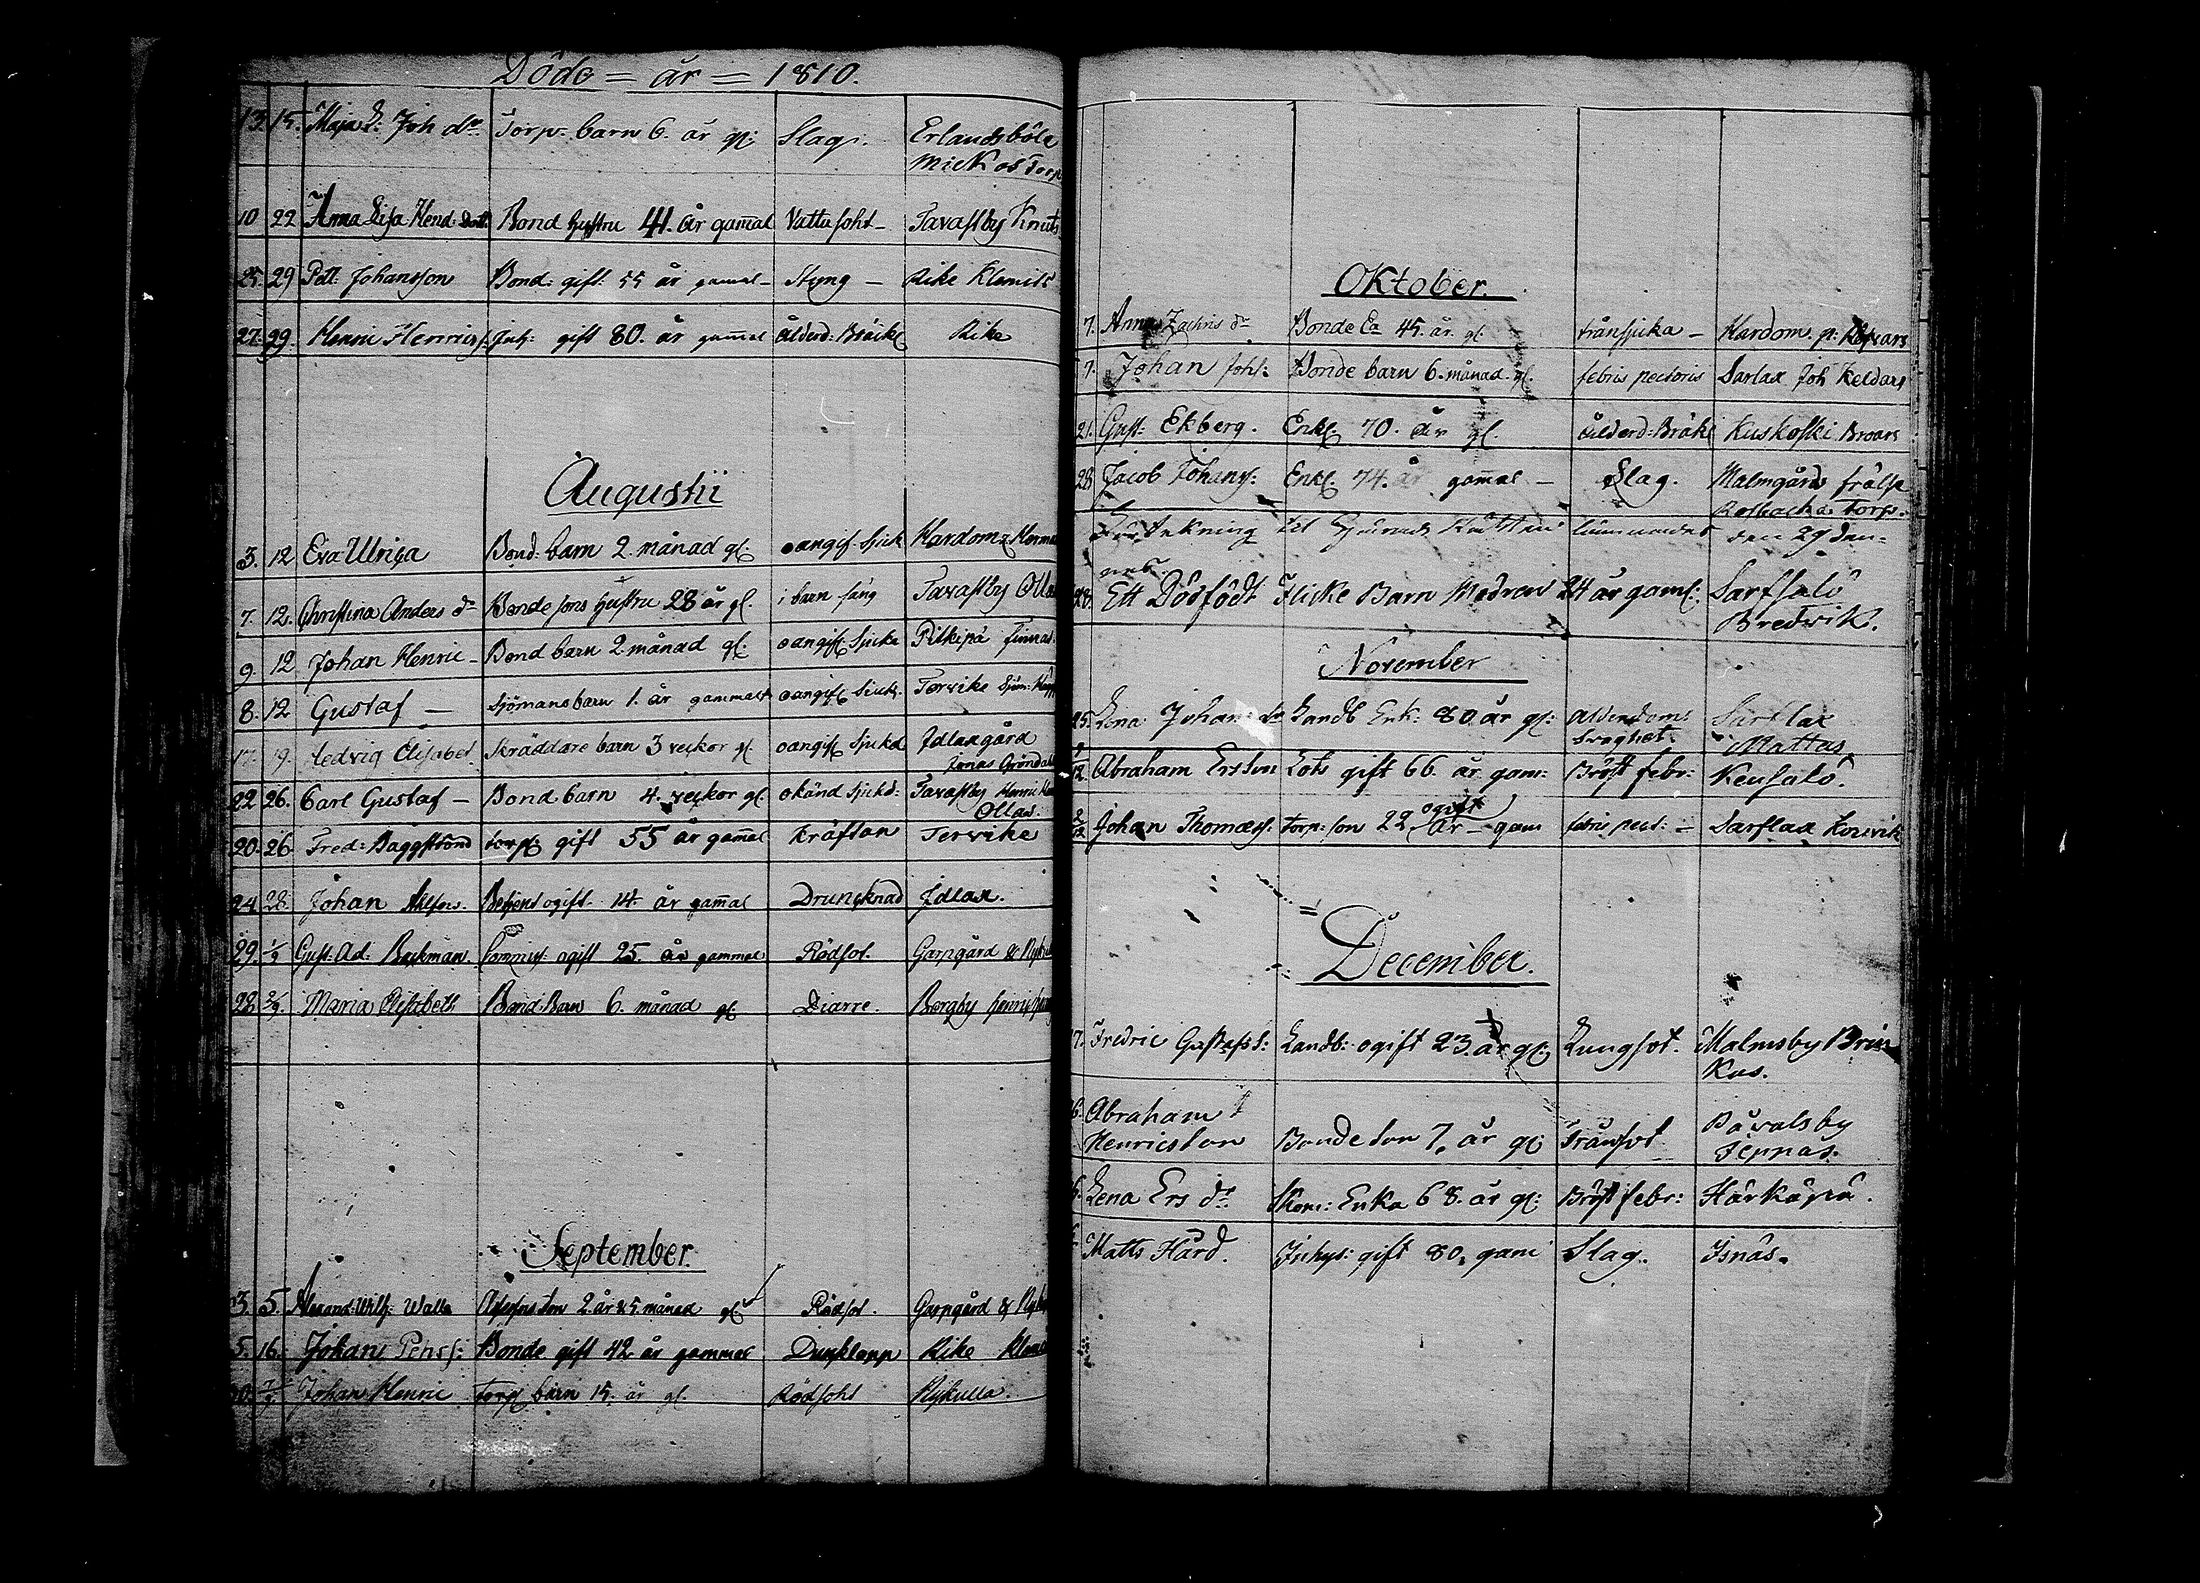 Döde = år = 1810.
13. 15. Maja L: Joh dr Torp. barn 6. år gl: Slag. Erlandsböle
Mickos Torp
10 22 Anna Lisa Hend: Dott: Bond hustru 41. år gamal Vattusoht - Tavastby Knuts
25. 29 Pett: Johansson Bond: gift 55 år gamal - Styng - Rike Klemits
27. 29. Henric Henrics: Inh: gift 80. år gamal ålderd: Bräckl Rike
Augustii
3. 12 Eva Ulrica Bond: barn 2. månad gl: oangif. Sjuk Hardom Herma
7. 12. Christina Anders dr Bonde sons hustru 28 år gl. i barn säng Tavastby Olla
9. 12 Johan Henric - Bond barn 2 månad gl: oangif. Sjuka Pitkipä Finnas
8. 12 Gustaf - Sjömans barn 1. år gammalt oangif. Siuk. Torvike Sjöm:
17. 19. Hedvig Elisabet. Skräddare barn 3 veckor gl. oangif. Sjukd Idlaxgård
Jonas Gröndahl
22 26. Carl Gustaf - Bond barn 4. veckor gl. okänd Sjukd: Tavastby Henric
Ollas.
20. 26. Fred: Baggström torp: gift 55 år gamal kräftan Tervike
24 28. Johan Betjent ogift 14. år gamal Drunknad Idlax.
29. 1/9 Gust: Ad: Beckman. Commis: ogift 25. år gammal Rödsot. Garpgård & Ryk
28. 2/9. Maria Elisabeth Bond: Barn 6. månad gl: Diarre. Borgby
September.
3. 5. Alexand: Wilh: Walle son 2. år & 5. månad gl Rödsot. Garpgård & Ryk
5. 16. Johan Pehrs: Bonde gift 42 år gammal Rike Klem
Johan Henric torp barn 15. år gl. Rödsoht Rykulla.
Oktober.
7. Anna Zachris dr Bonde Ea 45. år. gl. trånsjuka - Hardom. p:
7. Johan Johs: Bonde barn 6. månad. gl. febris pectoris Sarlax Joh Keldars
21. Gust: Ekberg. Enkl. 70. år gl. ålderd: Bräkl Kuskoski Broars
28 Jacob Johans: Enkl. 74. år gamal - Slag. Malmgård frälse
Rosbacka Torp.
den 29 den-
nes.
28. Ett Dödfödt Flicke Barn Modren 24 år gaml: Sarfsalö
Bredvik.
November
Lena Johans dr Landb Enk: 80. år gl: Alderdoms Sarflax
svaghet. Mattas
Abraham Ersson Lots gift 66. år gam: Bröst febr: Keusalö.
ogift
Johan Thomass. Torp: son 22. år - gam febris pect: - Sarflax
December.
17. Fredric Gustafss: Landb: ogift 23. år gl: Lungsot. Malmsby Brin
kas.
Abraham
Henricsson Bonde son 7. år gl: Trånsot Påvalsby
Jeppas.
Lena Ers dr Skom: Enka 68. år gl: Bröst febr: Härkäpää.
Matts Hård. Inhys: gift 80. gam Slag. Isnäs.